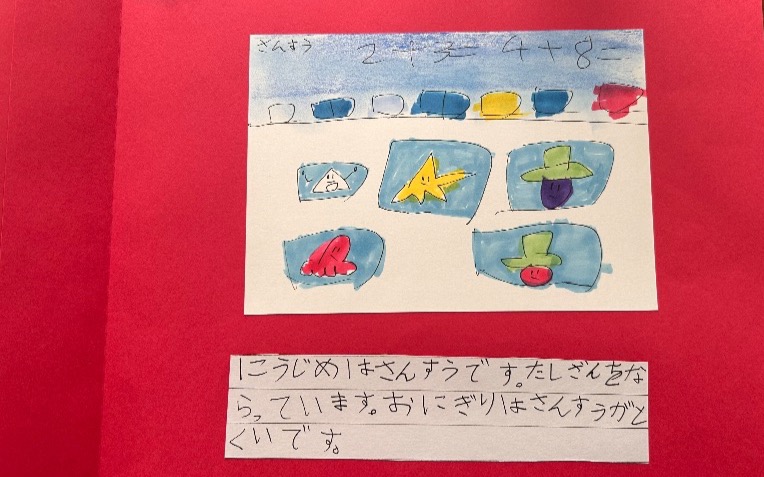 さんすう 2+3= 4+8=
1こうじめはさんすうです。たしざんをな
らっています。おにぎりはさんすうがと
くいです。